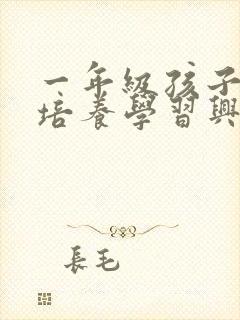 一年級孩子
培養學習興
長毛